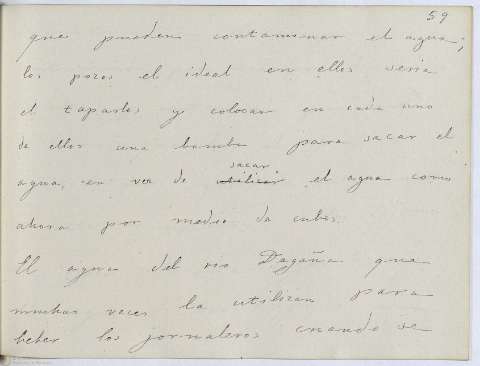 59
que pueden contaminar el agua;
los pozos el ideal en ellos seria
el taparlos y colocar en cada uno
de ellos una bomba para sacar el
sacar
agua, en vez de utilizar el agua como
ahora por medio de cubos.
El agua del rio Dagaña que
muchas veces la utilizan para
beber los jornaleros cuando se